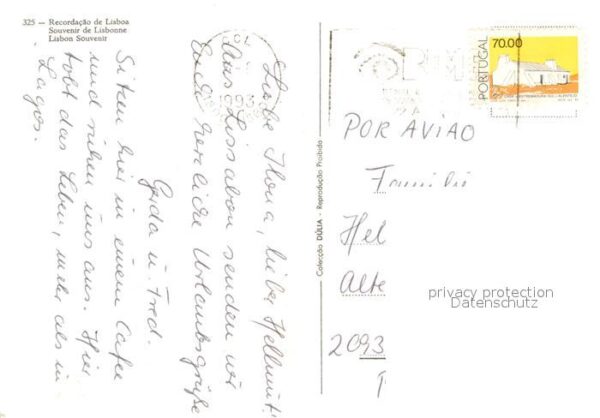 325 — Recordação de Lisboa
Souvenir de Lisbonne
Lisbon Souvenir
Liebe Ilona, lieber Hellmut!
Aus Lissabon senden wir
Euch herzliche Urlaubsgrüße
Gerda u. Fred.
Sitzen hier in einem Cafee
und ruhen uns aus. Hier
tobt das Leben, mehr als in
Lagos.
Colecção DÚLIA - Reprodução Proibida
1993
PORTUGAL
70.00
POR AVIAO
Familie
Hel
Alte
2093
privacy protection
Datenschutz